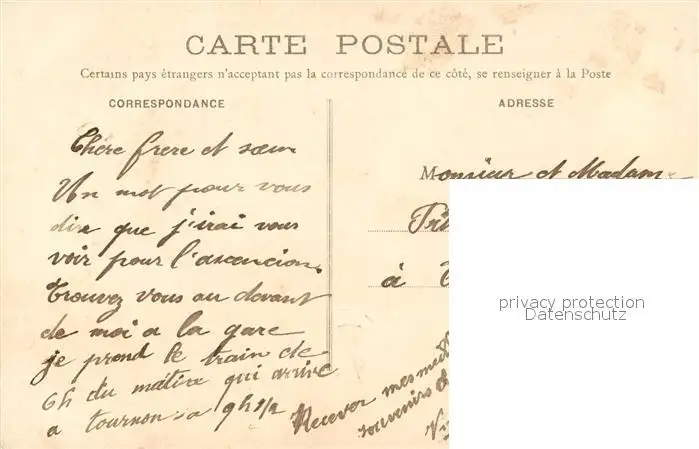 CARTE POSTALE
Certains pays étrangers n'acceptant pas la correspondance de ce côté, se renseigner à la Poste
CORRESPONDANCE
ADRESSE
Chère frere et sœur
Un mot pour vous
dire que j'irai vous
voir pour l'ascencion.
Trouvez vous au davant
de moi a la gare
je prend le train de
6h du matin qui arrive
a tournon a 9h 1/2
Monsieur et Madame
à
Recever mes meill
souvenirs d
privacy protection
Datenschutz